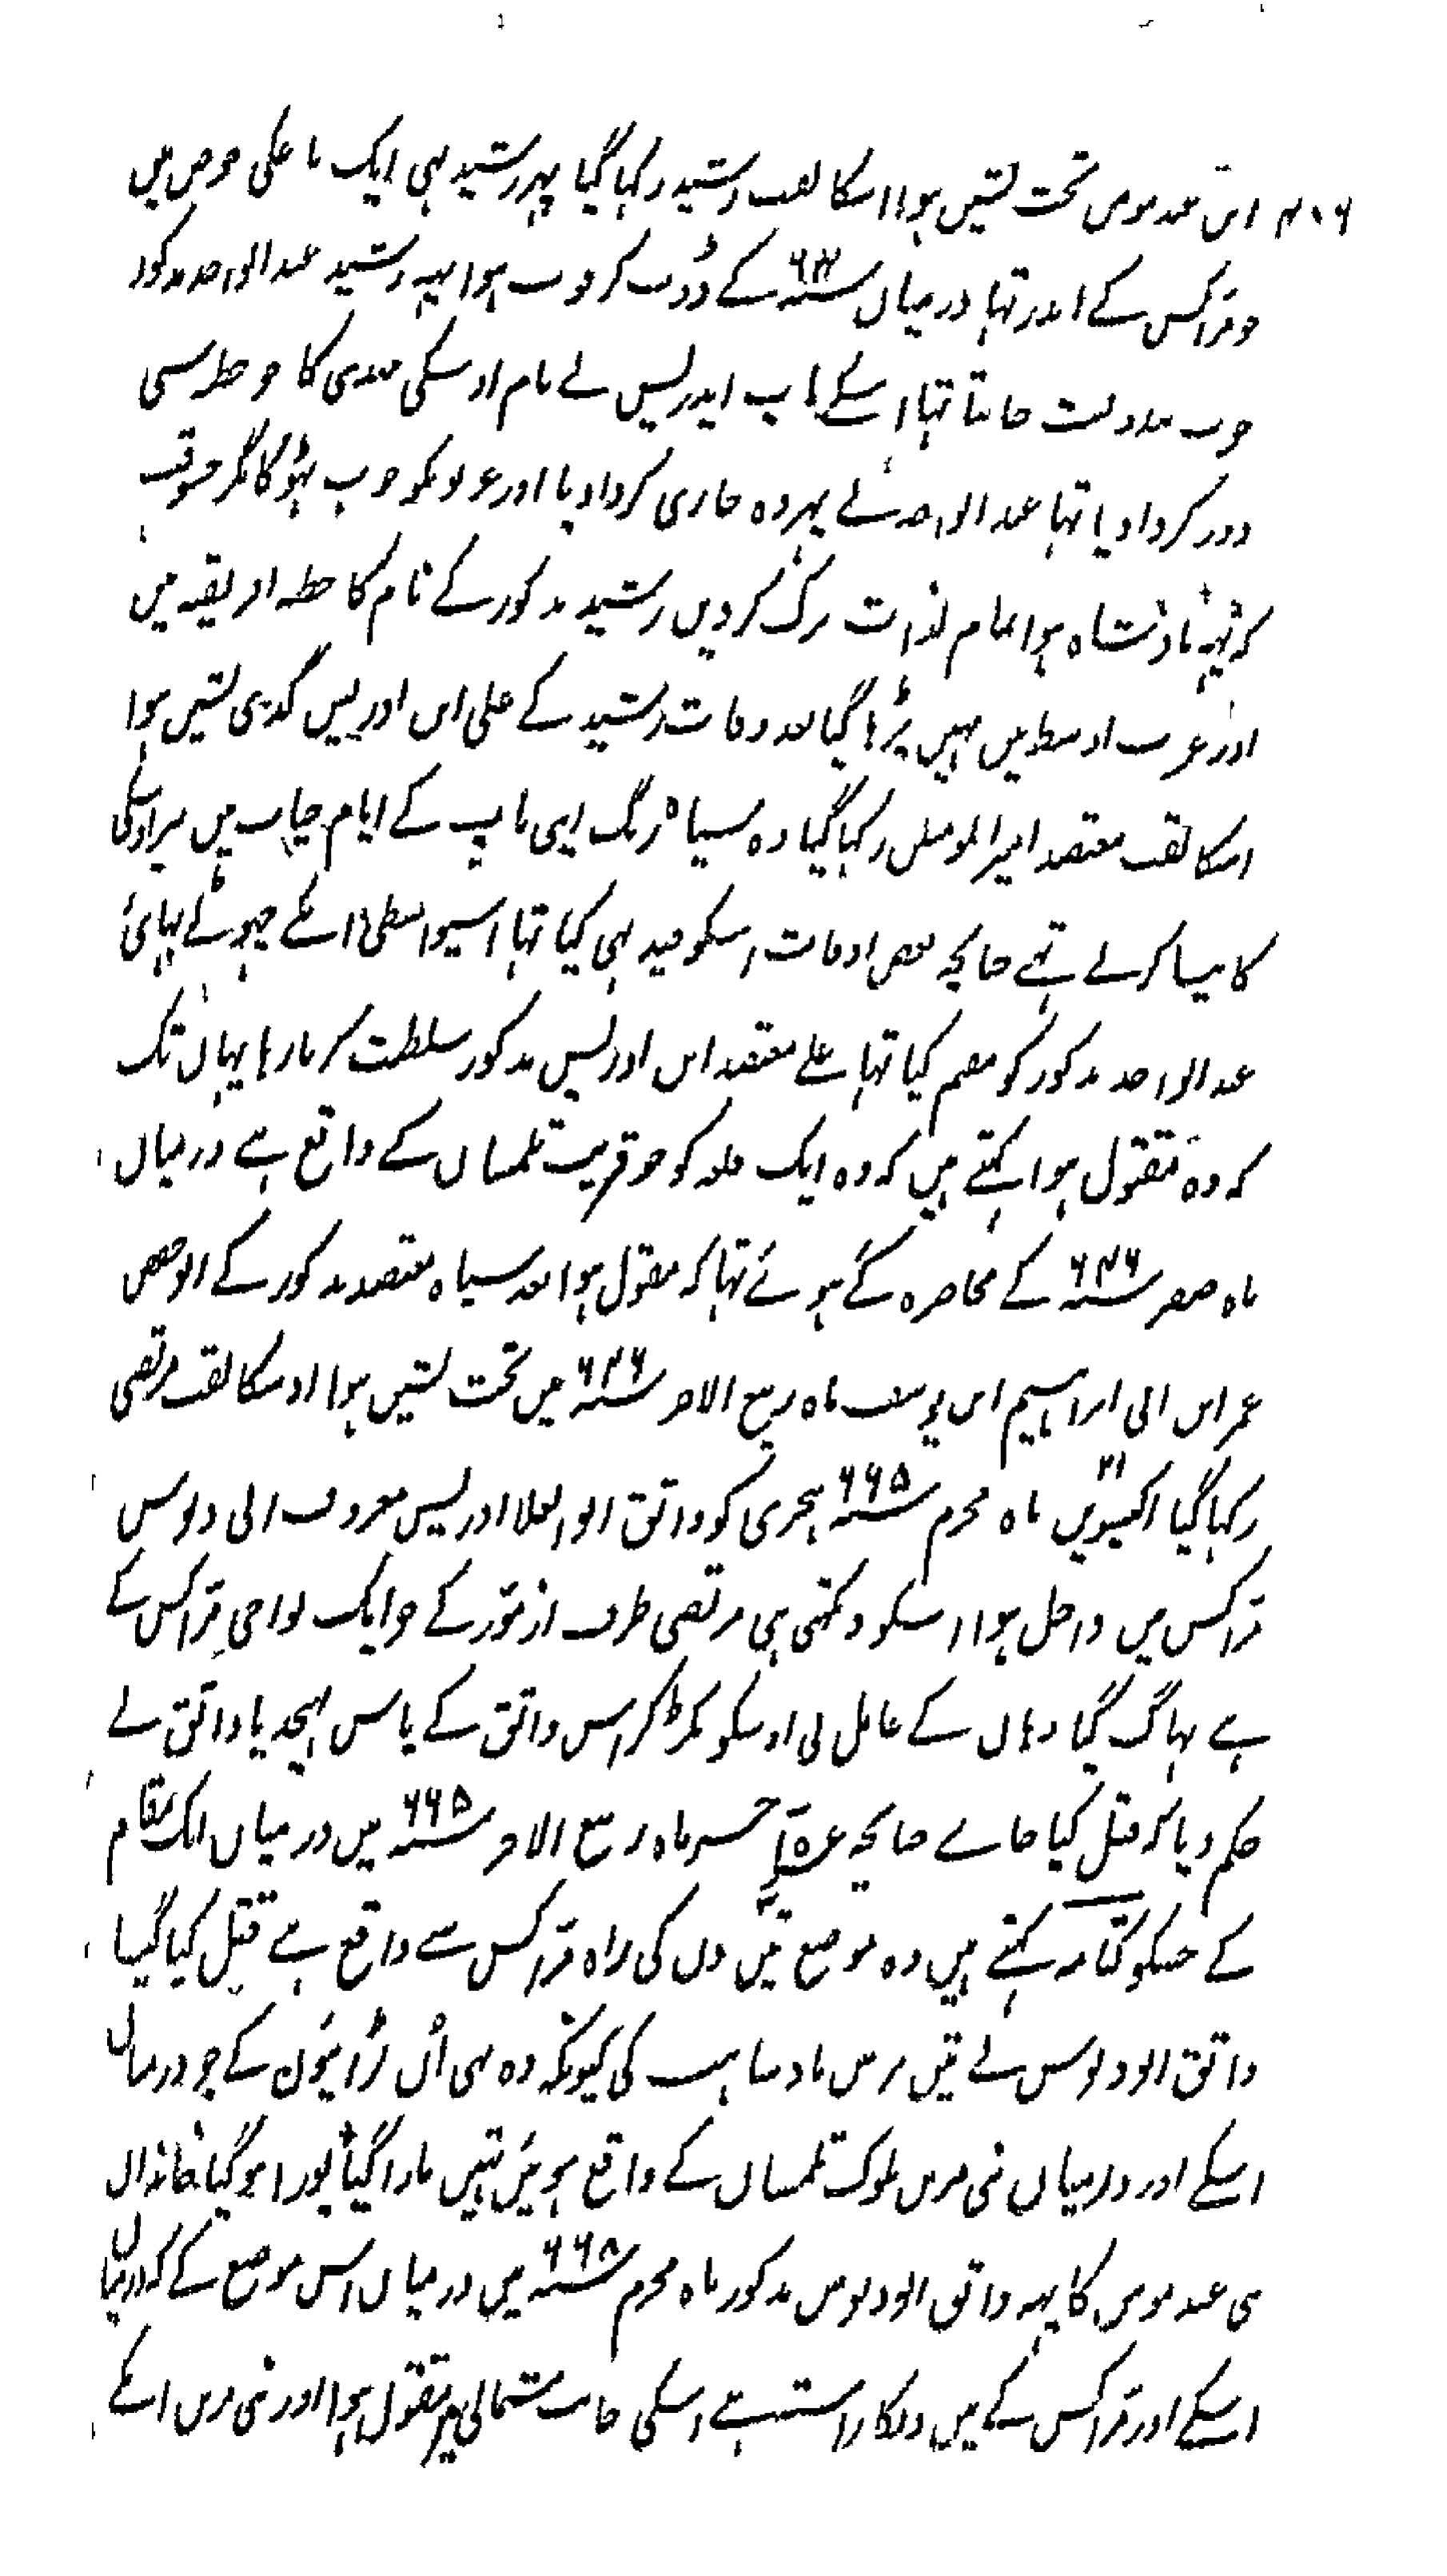 ۴۰۶ ابن عبد مومن تخت نشین ہوا اسکا لقب رشید رکہا گیا پہر رشید بہی ایک باغکی حوض میں
جو مراکس کے اندر تہا درمیان سنہ ۶۴۰ کے ڈوب کر فوت ہوا یہہ رشید عبد الواحد مذکور
خوب بندوبست جانتا تہا اسکے باپ ادریس نے نام اوسکی مہدی کا جو خطبہ سی
دور کروادیا تہا عبد الواحد نے پہر وہ جاری کروادیا اور عربونکو خوب ٹہوکا مگر جسوقت
کہ یہہ بادشاہ ہوا تمام لذات ترک کردیں رشید مذکور کے نام کا خطبہ افریقیہ میں
اور غرب اوسط میں نہیں پڑہا گیا بعد وفات رشید کے علی ابن ادریس گدی نشین ہوا
اسکا لقب معتضد امیر المومنین رکہا گیا وہ سیاہ رنگ اپنی باپ کے ایام حیات میں
کا بیسا کرتے تہے چنانچہ بعض اوقات اسکو قید بہی کیا تہا اسیواسطی اسکے چہوٹے بہائی
عبد الواحد مذکور کو مقدم کیا تہا علے معتضد ابن ادریس مذکور سلطنت کرتا رہا یہاں تک
کہ وہ مقتول ہوا کہتے ہیں کہ وہ ایک قلعہ کو جو قریب تلمسان کے واقع ہے درمیان
ماہ صفر سنہ ۶۴۶ کے محاصرہ کئے ہوئے تہا کہ مقتول ہوا بعد سیاہ معتضد مذکور کے ابو حفص
عمر ابن ابی ابراہیم ابن یوسف ماہ ربیع الاخر سنہ ۶۴۶ میں تخت نشین ہوا اوسکا لقب مرتضی
رکہا گیا اکیسویں ۲۱ ماہ محرم سنہ ۶۶۵ ہجری کو واثق ابو العلا ادریس معروف ابی دبوس
مراکس میں داخل ہوا اسکو دیکہتی ہی مرتضی طرف ازمور کے جو ایک نواحی مراکس کے
ہے بہاگ گیا وہاں کے عامل نی اوسکو پکڑکر اس واثق کے پاس بہیجدیا واثق نے
حکم دیا کہ قتل کیا جاے چنانچہ عشرہ آخر ماہ ربیع الاخر سنہ ۶۶۵ میں درمیان ایک مقام
کے جسکو کتامہ کہتے ہیں وہ موضع تین دن کی راہ مراکس سے واقع ہے قتل کیا گیا
واثق ابو دبوس نے تین برس بادشاہت کی کیونکہ وہ بہی اُن لڑائیون کے جو درمیان
اسکے اور درمیان بنی مرین ملوک تلمسان کے واقع ہوئین تہیں مارا گیا پورا ہو گیا خاندان
بنی عبد مومن کا یہہ واثق ابو دبوس مذکور ماہ محرم سنہ ۶۶۸ میں درمیان اس موضع کے کہ درمیان
اسکے اور مراکس کے تین دنکا راستہ ہے اسکی جانب شمالی میں مقتول ہوا اور بنی مرین اسکے